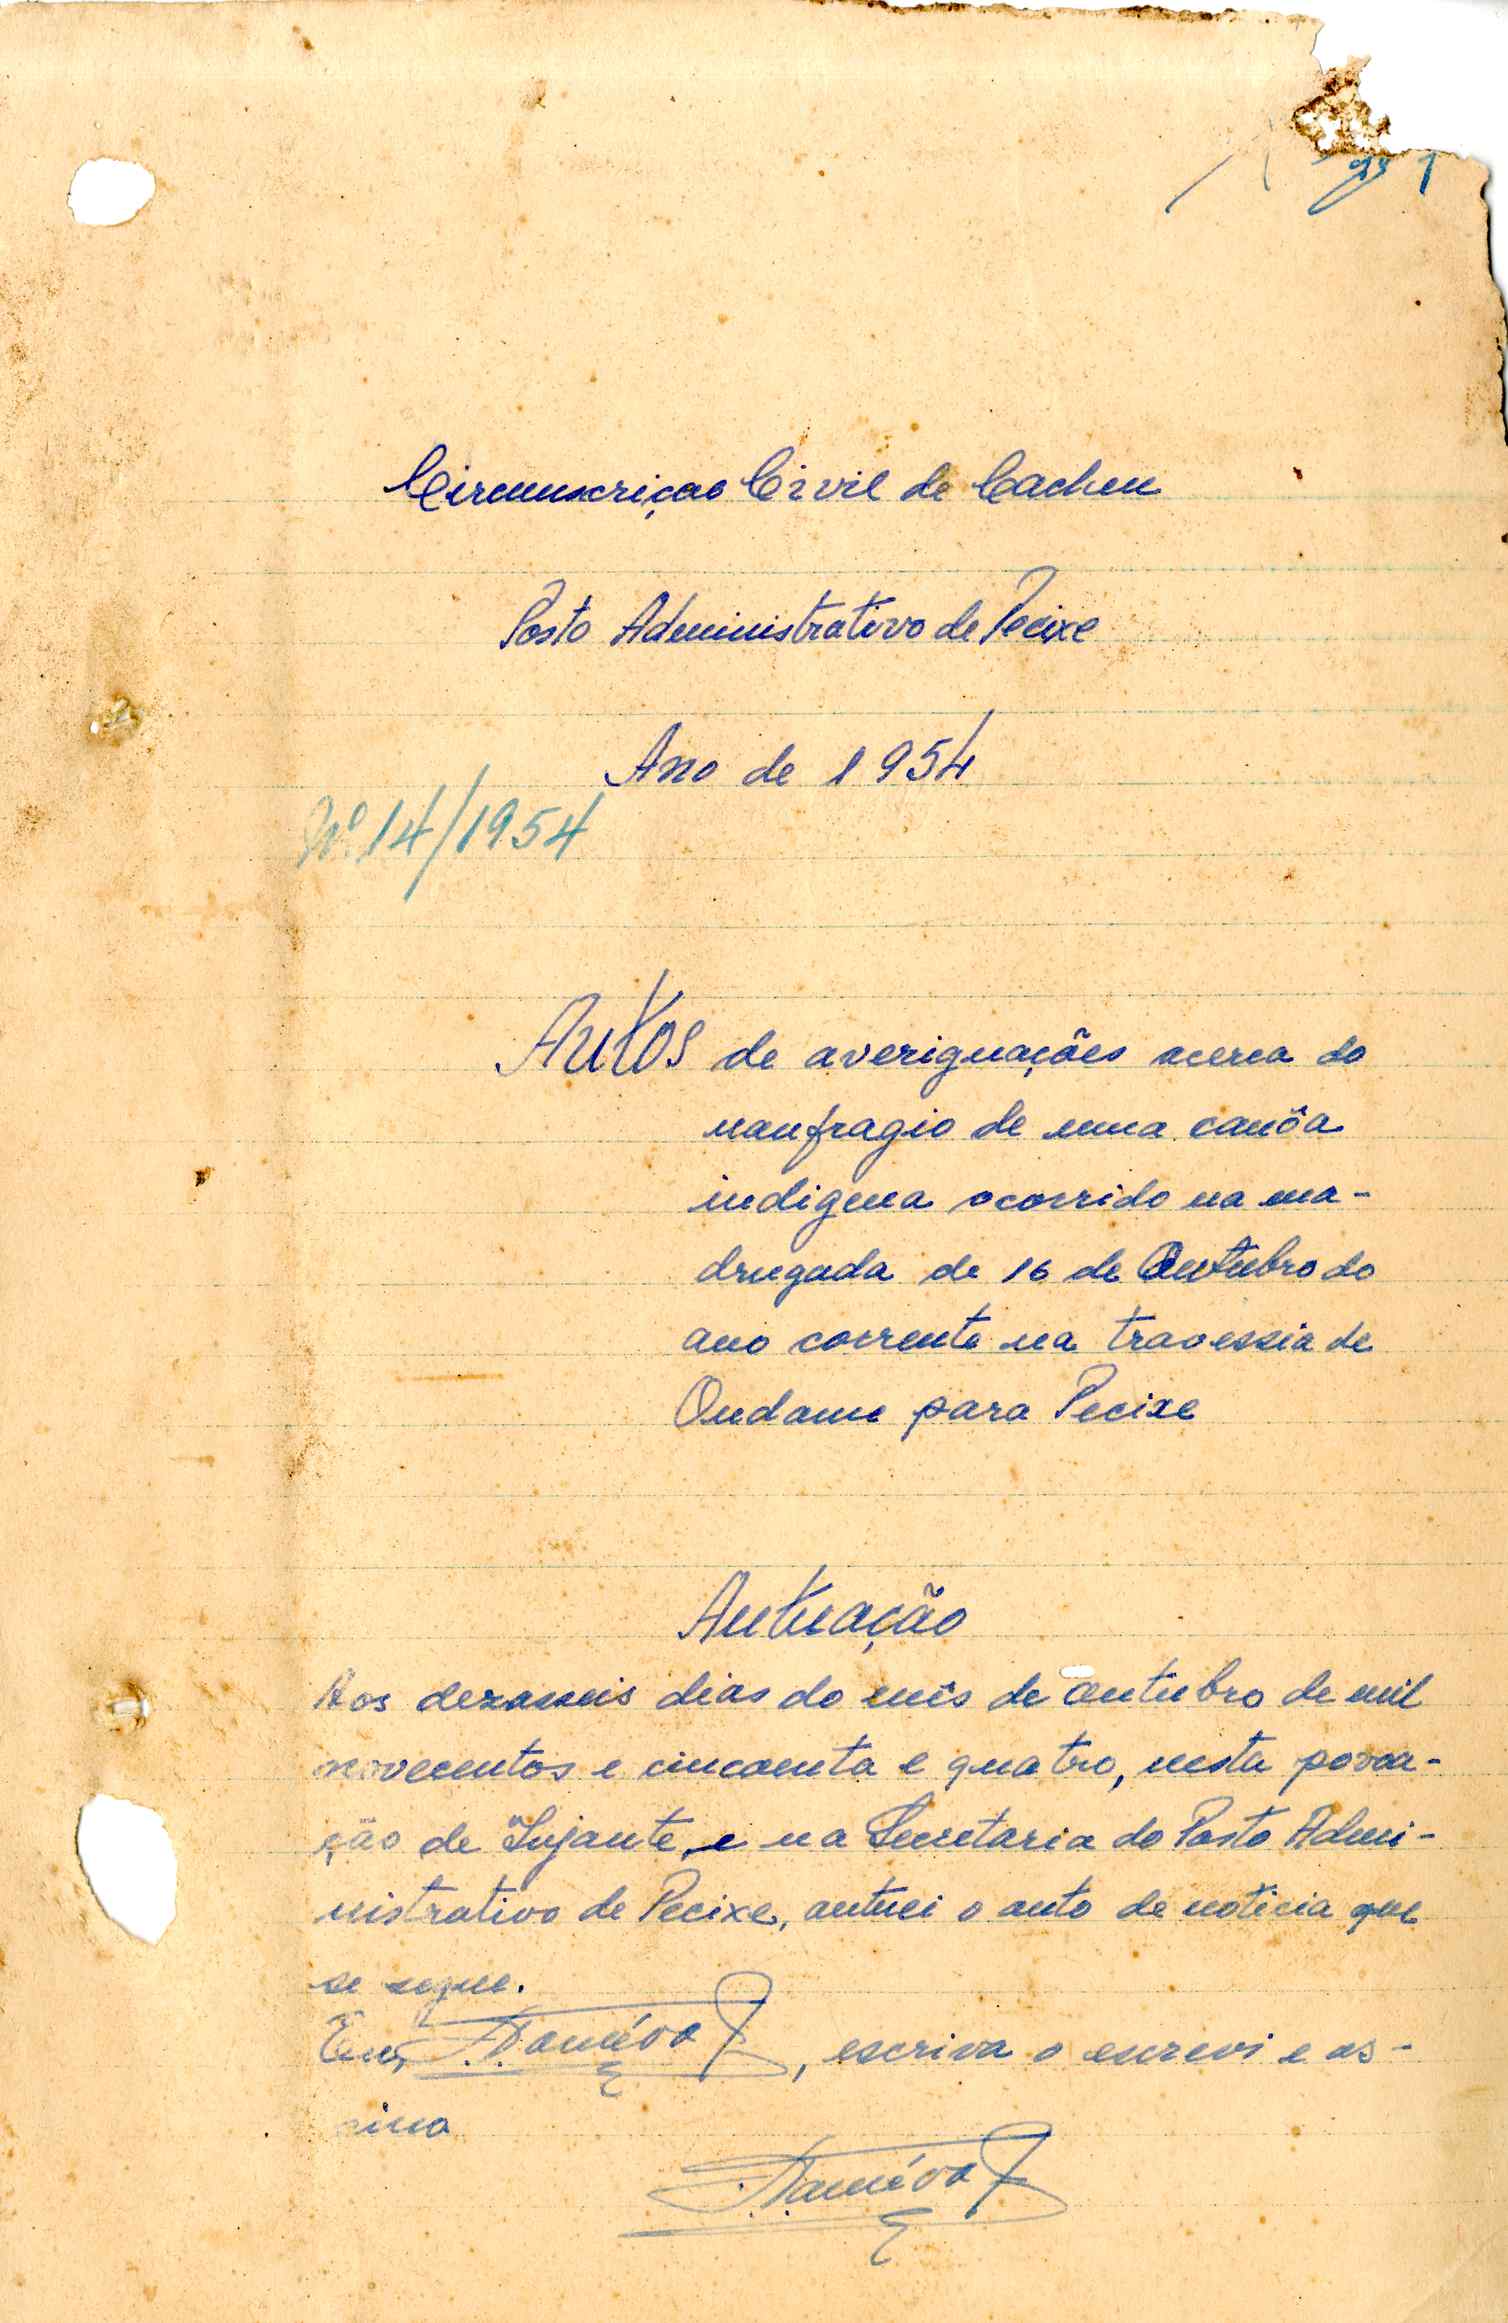 1
Circunscriçao Civil de Cacheu
Posto Administrativo de Pecixe
Ano de 1954
Nº 14/1954
Autos de averiguações acerca do
naufragio de uma canôa
indigena ocorrido na ma-
drugada de 16 de Outubro do
ano corrente na travessia de
Ondame para Pecixe
Autuação
Aos dezasseis dias do mês de outubro de mil
novecentos e cincoenta e quatro, nesta povoa-
ção de Jujante, e na Secretaria do Posto Admi-
nistrativo de Pecixe, autuei o auto de noticia que
se segue.
Eu, , escriva o escrevi e as-
sino